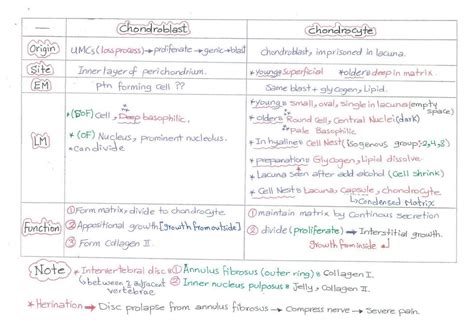 Chondroblast
Chondrocyte
Origin
UMCs (loss process) → proliferate → genic → blast
Chondroblast, imprisoned in lacuna.
Site
Inner layer of perichondrium.
* young: superficial * older: deep in matrix.
EM
ptn forming cell ??
Same blast + glycogen, Lipid.
LM
* (BOF) Cell, Deep basophilic.
* (OF) Nucleus, prominent nucleolus.
* can divide
* young: small, oval, single in lacuna (empty space)
* older: Round cell, Central Nuclei (dark)
Pale Basophilic
* In hyaline: Cell Nest (isogenous group: 2,4,8)
* preparation: Glycogen, lipid dissolve.
* Lacuna seen after add alcohol (Cell shrink)
* Cell Nest: Lacuna, Capsule, chondrocyte
↳ Condensed Matrix
Function
① Form matrix, divide to chondrocyte.
② Appositional growth [growth from outside]
③ Form Collagen II.
① maintain matrix by Continous secretion
② divide (proliferate) → Interstitial growth.
growth from inside
Note
* Intervertebral disc: ① Annulus fibrosus (outer ring): Collagen I.
(between 2 adjacent vertebrae)
② Inner nucleus pulposus: Jelly, Collagen II.
* Herination → Disc prolapse from annulus fibrosus → Compress nerve → Severe pain.